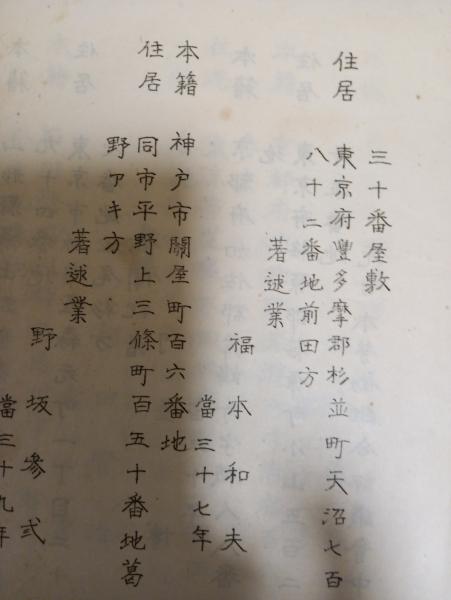 三十番屋敷
住居 東京府豐多摩郡杉並町天沼七百
八十二番地前田方
著述業
福本和夫
當三十七年
本籍 神戸市關屋町百六番地
住居 同市平野上三條町百五十番地葛
野アキ方
著述業
野坂參弐
當三十九年